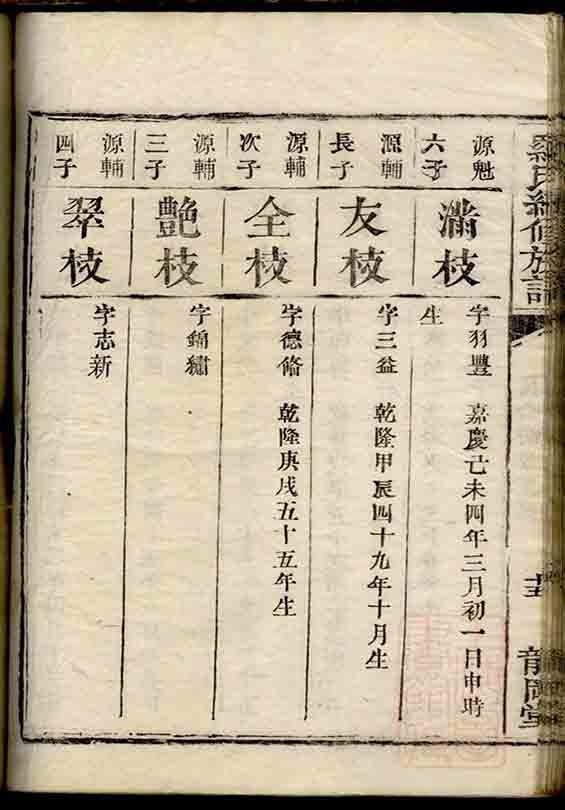 羅氏續修族譜
龍岡堂
源魁
六子
滿枝
字羽豐 嘉慶己未四年三月初一日申時
生
源輔
長子
友枝
字三益 乾隆甲辰四十九年十月生
源輔
次子
全枝
字德脩 乾隆庚戌五十五年生
源輔
三子
艷枝
字錦繡
源輔
四子
翠枝
字志新